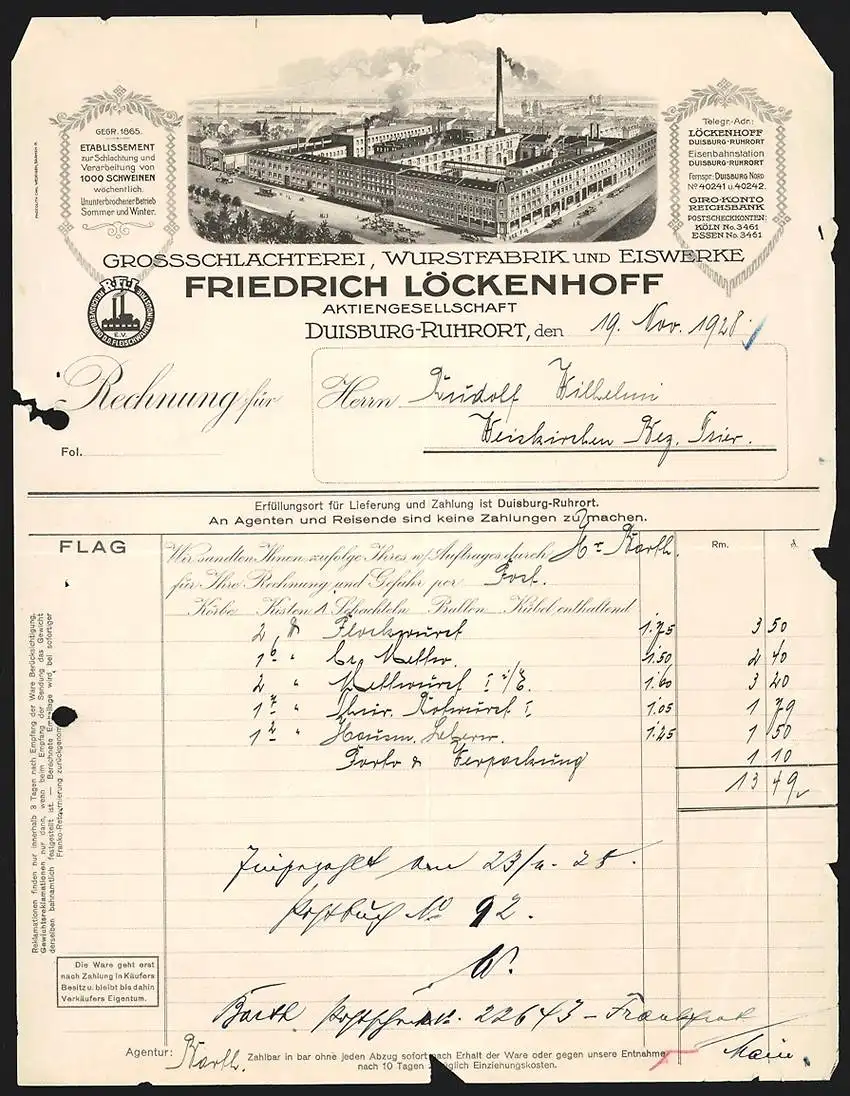 GEGR. 1865.
ETABLISSEMENT
zur Schlachtung und
Verarbeitung von
1000 SCHWEINEN
wöchentlich.
Ununterbrochener Betrieb
Sommer und Winter.
Telegr.-Adr.:
LÖCKENHOFF
DUISBURG-RUHRORT
Eisenbahnstation
DUISBURG-RUHRORT
Fernspr: DUISBURG NORD
No 40241 u. 40242.
GIRO-KONTO
REICHSBANK
POSTSCHECKKONTEN:
KÖLN No. 3461
ESSEN No. 3461
GROSSSCHLACHTEREI, WURSTFABRIK UND EISWERKE
FRIEDRICH LÖCKENHOFF
AKTIENGESELLSCHAFT
DUISBURG-RUHRORT, den 19. Nov. 1928
R.F.I.
REICHSVERBAND D.D. FLEISCHWAREN-INDUSTRIE
E.V.
Rechnung für
Herrn Rudolf Wilhelmi
Weiskirchen Bez. Trier.
Fol.
Erfüllungsort für Lieferung und Zahlung ist Duisburg-Ruhrort.
An Agenten und Reisende sind keine Zahlungen zu machen.
FLAG
Wir sandten Ihnen zufolge Ihres w/ Auftrages durch Hr Barth.
Rm. ₰
für Ihre Rechnung und Gefahr per Post.
Körbe Kisten 1 Schachteln Ballen Kübel enthaltend
2 ℔ Plockwurst 1.75 3 50
1 6 " Mettw. 1.50 2 40
2 " Mettwurst I 1.60 3 20
1 7 " Thür. Rotwurst I 1.05 1 79
1 2 " Hausm. Leberw. 1.25 1 50
Porto & Verpackung 1 10
13 49
Eingezahlt am 23/11. 28.
Postbuch No 92.
W.
Barth Postscheckk. 22643 – Frankfurt
Main
Reklamationen finden nur innerhalb 3 Tagen nach Empfang der Ware Berücksichtigung,
Gewichtsreklamationen nur dann, wenn beim Empfang der Sendung das Gewicht
derselben bahnamtlich festgestellt ist. — Berechnete Emballage wird bei sofortiger
Franko-Retournierung zurückgenommen
Die Ware geht erst
nach Zahlung in Käufers
Besitz u. bleibt bis dahin
Verkäufers Eigentum.
Agentur: Barth.
Zahlbar in bar ohne jeden Abzug sofort nach Erhalt der Ware oder gegen unsere Entnahme
nach 10 Tagen zuzüglich Einziehungskosten.